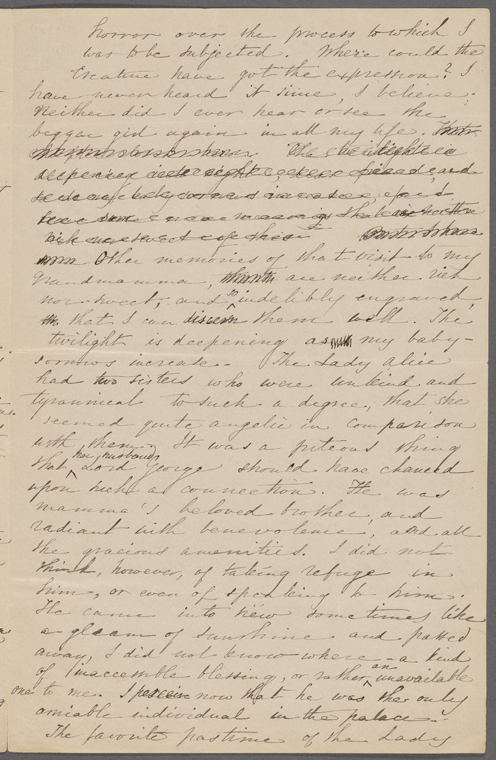 horror over the process to which I
was to be subjected. Where could the
creature have got the expression? I
have never heard it since, I believe;
Neither did I ever hear or see the
beggar girl again in all my life.
The twilight is
deepened
Other memories of that visit to my
Grandmamma, are neither rich
nor sweet; and so indelibly engraved,
that I can discern them well. The
twilight is deepening as my baby-
sorrows increase. The Lady Alice
had two sisters who were unkind and
tyrannical to such a degree, that she
seemed quite angelic in comparison
with them. It was a piteous thing
that her husband, Lord George should have chanced
upon such a connection. He was
mamma's beloved brother, and
radiant with benevolence, and all
the gracious amenities. I did not
think, however, of taking refuge in
him, or even of speaking to him.
He came into view sometimes like
a gleam of sunshine and passed
away, I did not know where—a kind
of inaccessible blessing, or rather an unavailable
one to me. I perceive now that he was the only
amiable individual in the palace.
The favorite pastime of the Lady